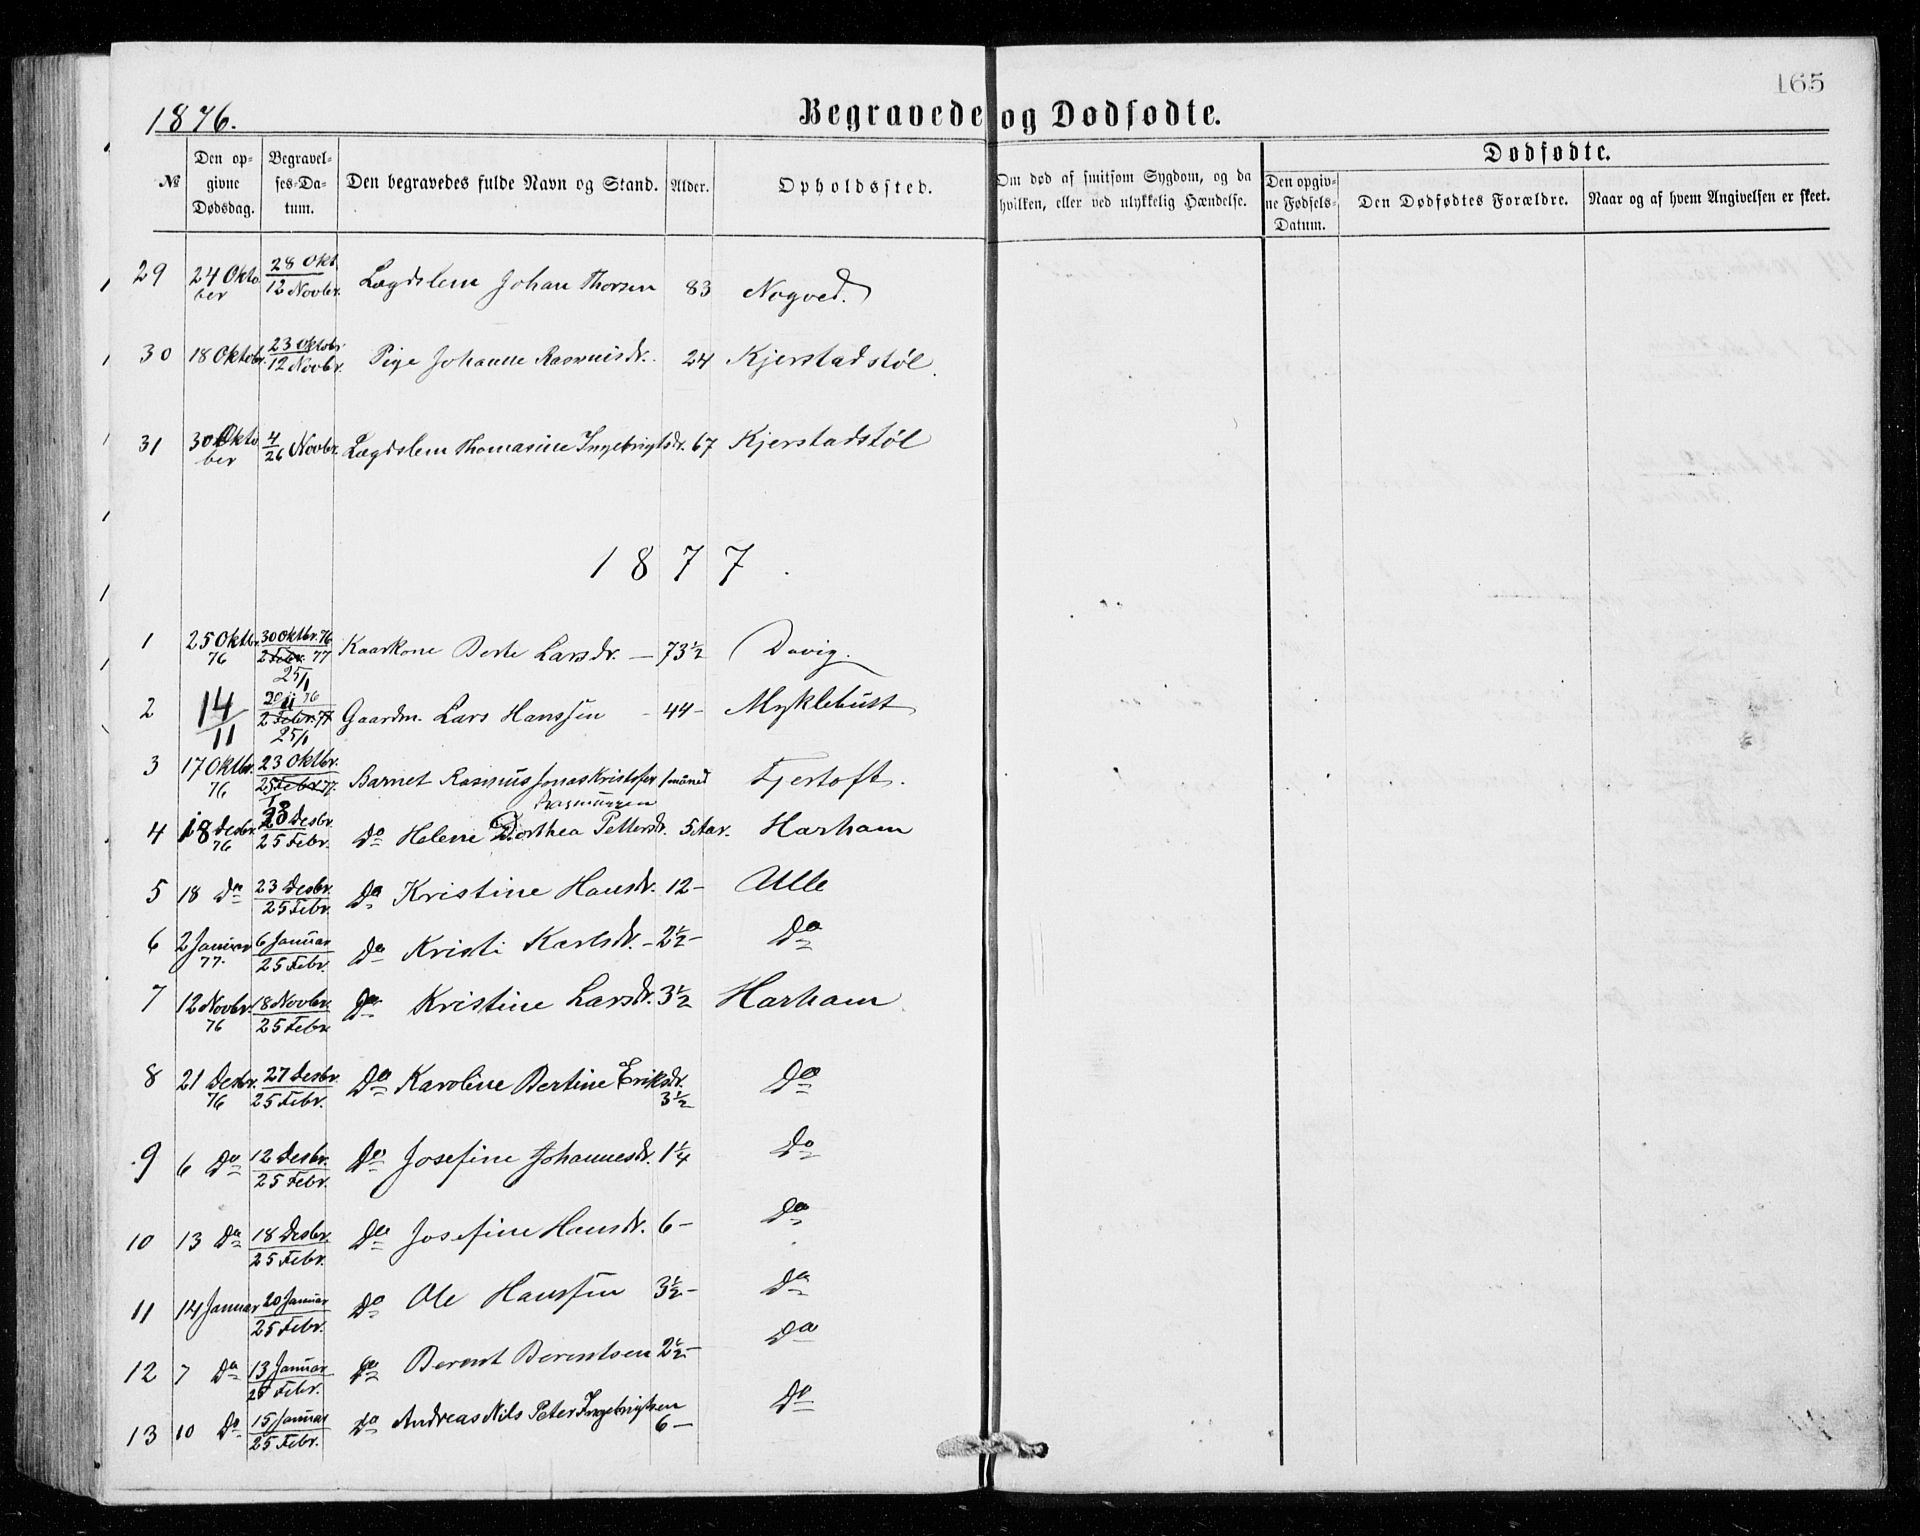 165
1876.
Begravede og Dødfødte.
№
Den opgivne Dødsdag.
Begravelses-Datum.
Den begravedes fulde Navn og Stand.
Alder.
Opholdssted.
Om død af smitsom Sygdom, og da hvilken, eller ved ulykkelig Hændelse.
Dødfødte.
Den opgivne Fødsels-Datum.
Den Dødfødtes Forældre.
Naar og af hvem Angivelsen er skeet.
29 24 Oktober 28 Okt. 12 Novbr. Lægdslem Johan Thorsen 83 Nogved.
30 18 Oktobr. 23 Oktobr. 12 Novbr. Pige Johanne Rasmusdr. 24 Kjerstadstøl.
31 30 Oktober 4/26 Novbr. Lægdslem Thomasine Ingebrigtsdr. 67 Kjerstadstøl
1877.
1 25 Oktbr. 76 30 Oktbr. 76 2 Febr. 77 25/1 Kaarkone Berte Larsdr. — 73½ Davig.
2 14/11 20/11 76 2 Febr. 77 25/1 Gaardm. Lars Hanssen - 44 - Myklebust
3 17 Oktbr. 76 23 Oktbr. 25 Febr. 77. Barnet Rasmus Jonas Kristofer Rasmussen 1 måned Fjertoft.
4 18 Desbr. 76 23 Desbr. 25 Febr. Do Helene Dorthea Pettersdr. 5 Aar. Harham
5 18 Do 23 Desbr. 25 Febr. Do Kristine Hansdr. 12 - Ulle
6 2 Januar 77. 6 Januar 25 Febr. Do Kristi Karlsdr. - 2½ - Do
7 12 Novbr. 76 18 Novbr. 25 Febr. Do Kristine Larsdr. 3½ Harham
8 21 Desbr. 76 27 Desbr. 25 Febr. Do Karoline Bertine Eriksdr. 3½ Do
9 6 Do 12 Desbr. 25 Febr. Do Josefine Johannesdr. 1¼ Do
10 13 Do 18 Desbr. 25 Febr. Do Josefine Hansdr. 6 - Do
11 14 Januar 20 Januar 25 Febr. Do Ole Hanssen 3½ - Do
12 7 Do 13 Januar 25 Febr. Do Berent Berentsen 2½ - Do
13 10 Do 15 Januar 25 Febr. Do Andreas Nils Peter Ingebrigtsen 6 - Do